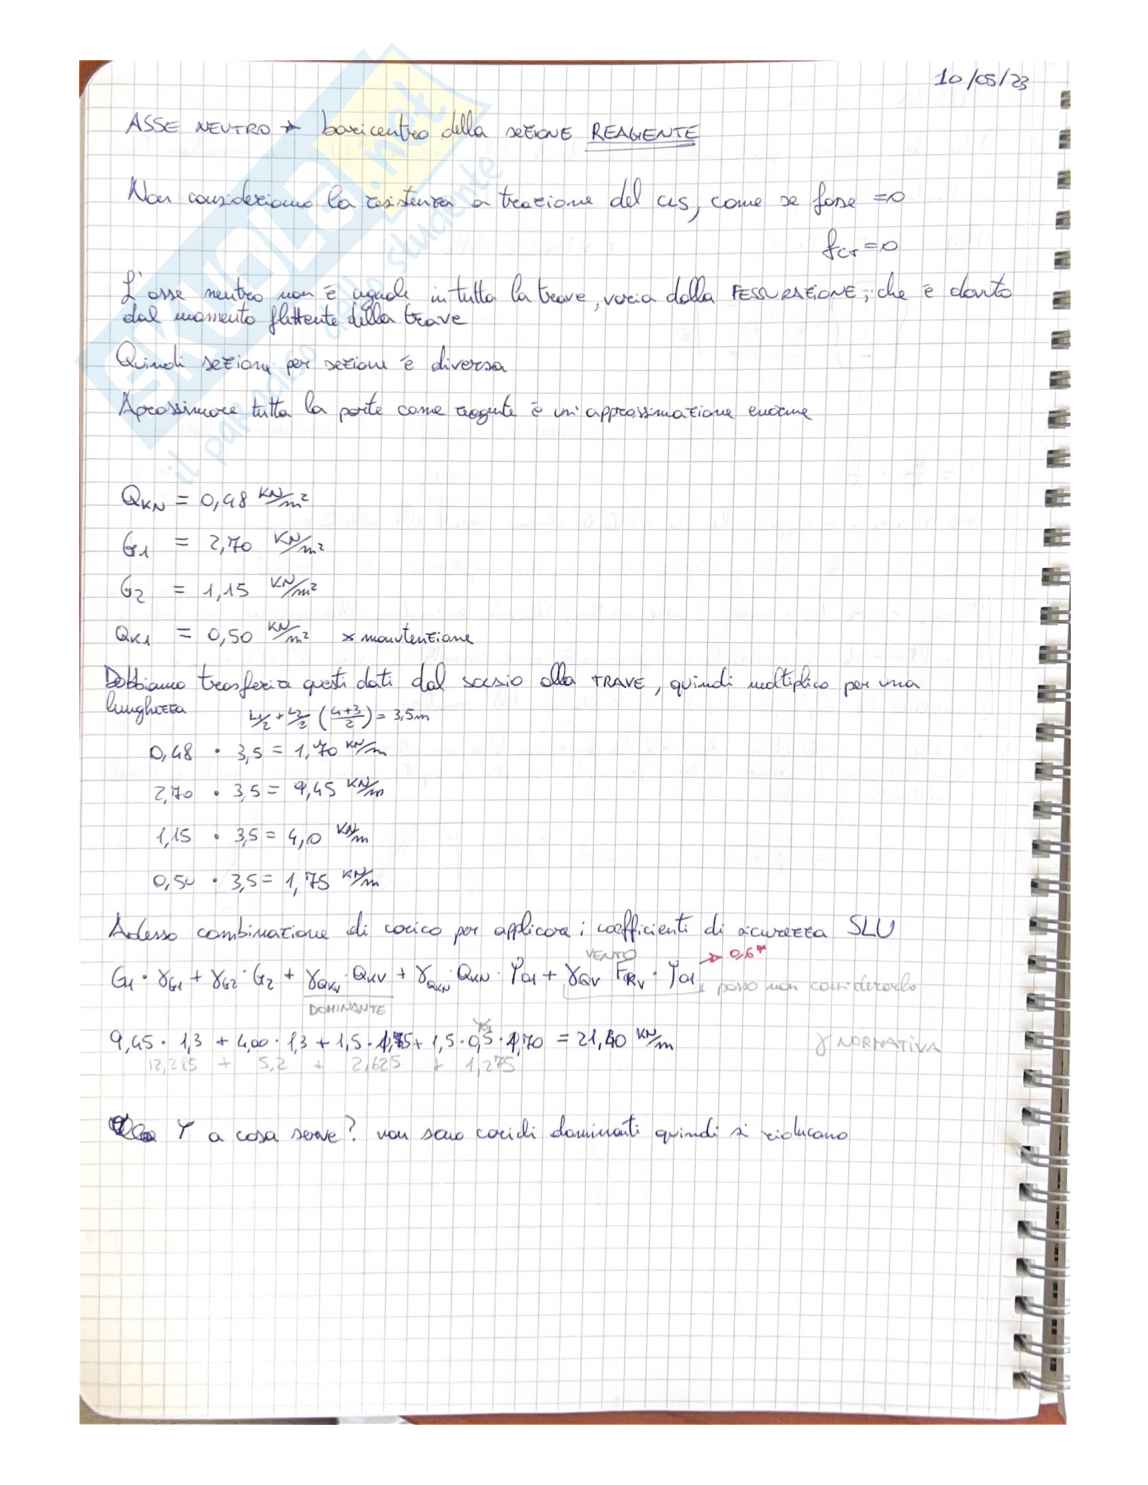 10/05/23
ASSE NEUTRO → baricentro della sezione REAGENTE
Non consideriamo la resistenza a trazione del cls, come se fosse =0
fct=0
L'asse neutro non è uguale in tutta la trave, varia dalla FESSURAZIONE, che è dovuta
dal momento flettente della trave
Quindi sezione per sezione è diversa
Aprossimare tutta la parte come reagente è un'approssimazione enorme
QKN = 0,48 KN/m²
G1 = 2,70 KN/m²
G2 = 1,15 KN/m²
QK1 = 0,50 KN/m² x manutenzione
Dobbiamo trasferire questi dati dal solaio alla TRAVE, quindi moltiplico per una
lunghezza L1/2 + L2/2 (4+3/2) = 3,5m
0,48 · 3,5 = 1,70 KN/m
2,70 · 3,5 = 9,45 KN/m
1,15 · 3,5 = 4,0 KN/m
0,50 · 3,5 = 1,75 KN/m
Adesso combinazione di carico per applicare i coefficienti di sicurezza SLU
VENTO → 0,6
G1 · γG1 + γG2 · G2 + γQKV · QKV + γQKN · QKN · Ψ01 + γQV · Ψ01 posso non considerarlo
DOMINANTE
9,45 · 1,3 + 4,00 · 1,3 + 1,5 · 1,75 + 1,5 · 0,5 · 1,70 = 21,40 KN/m γ NORMATIVA
12,285 + 5,2 + 2,625 + 1,275
Ψ a cosa serve? non sono carichi dominanti quindi si riducono
SKUOLA.net
il paradiso dello studente